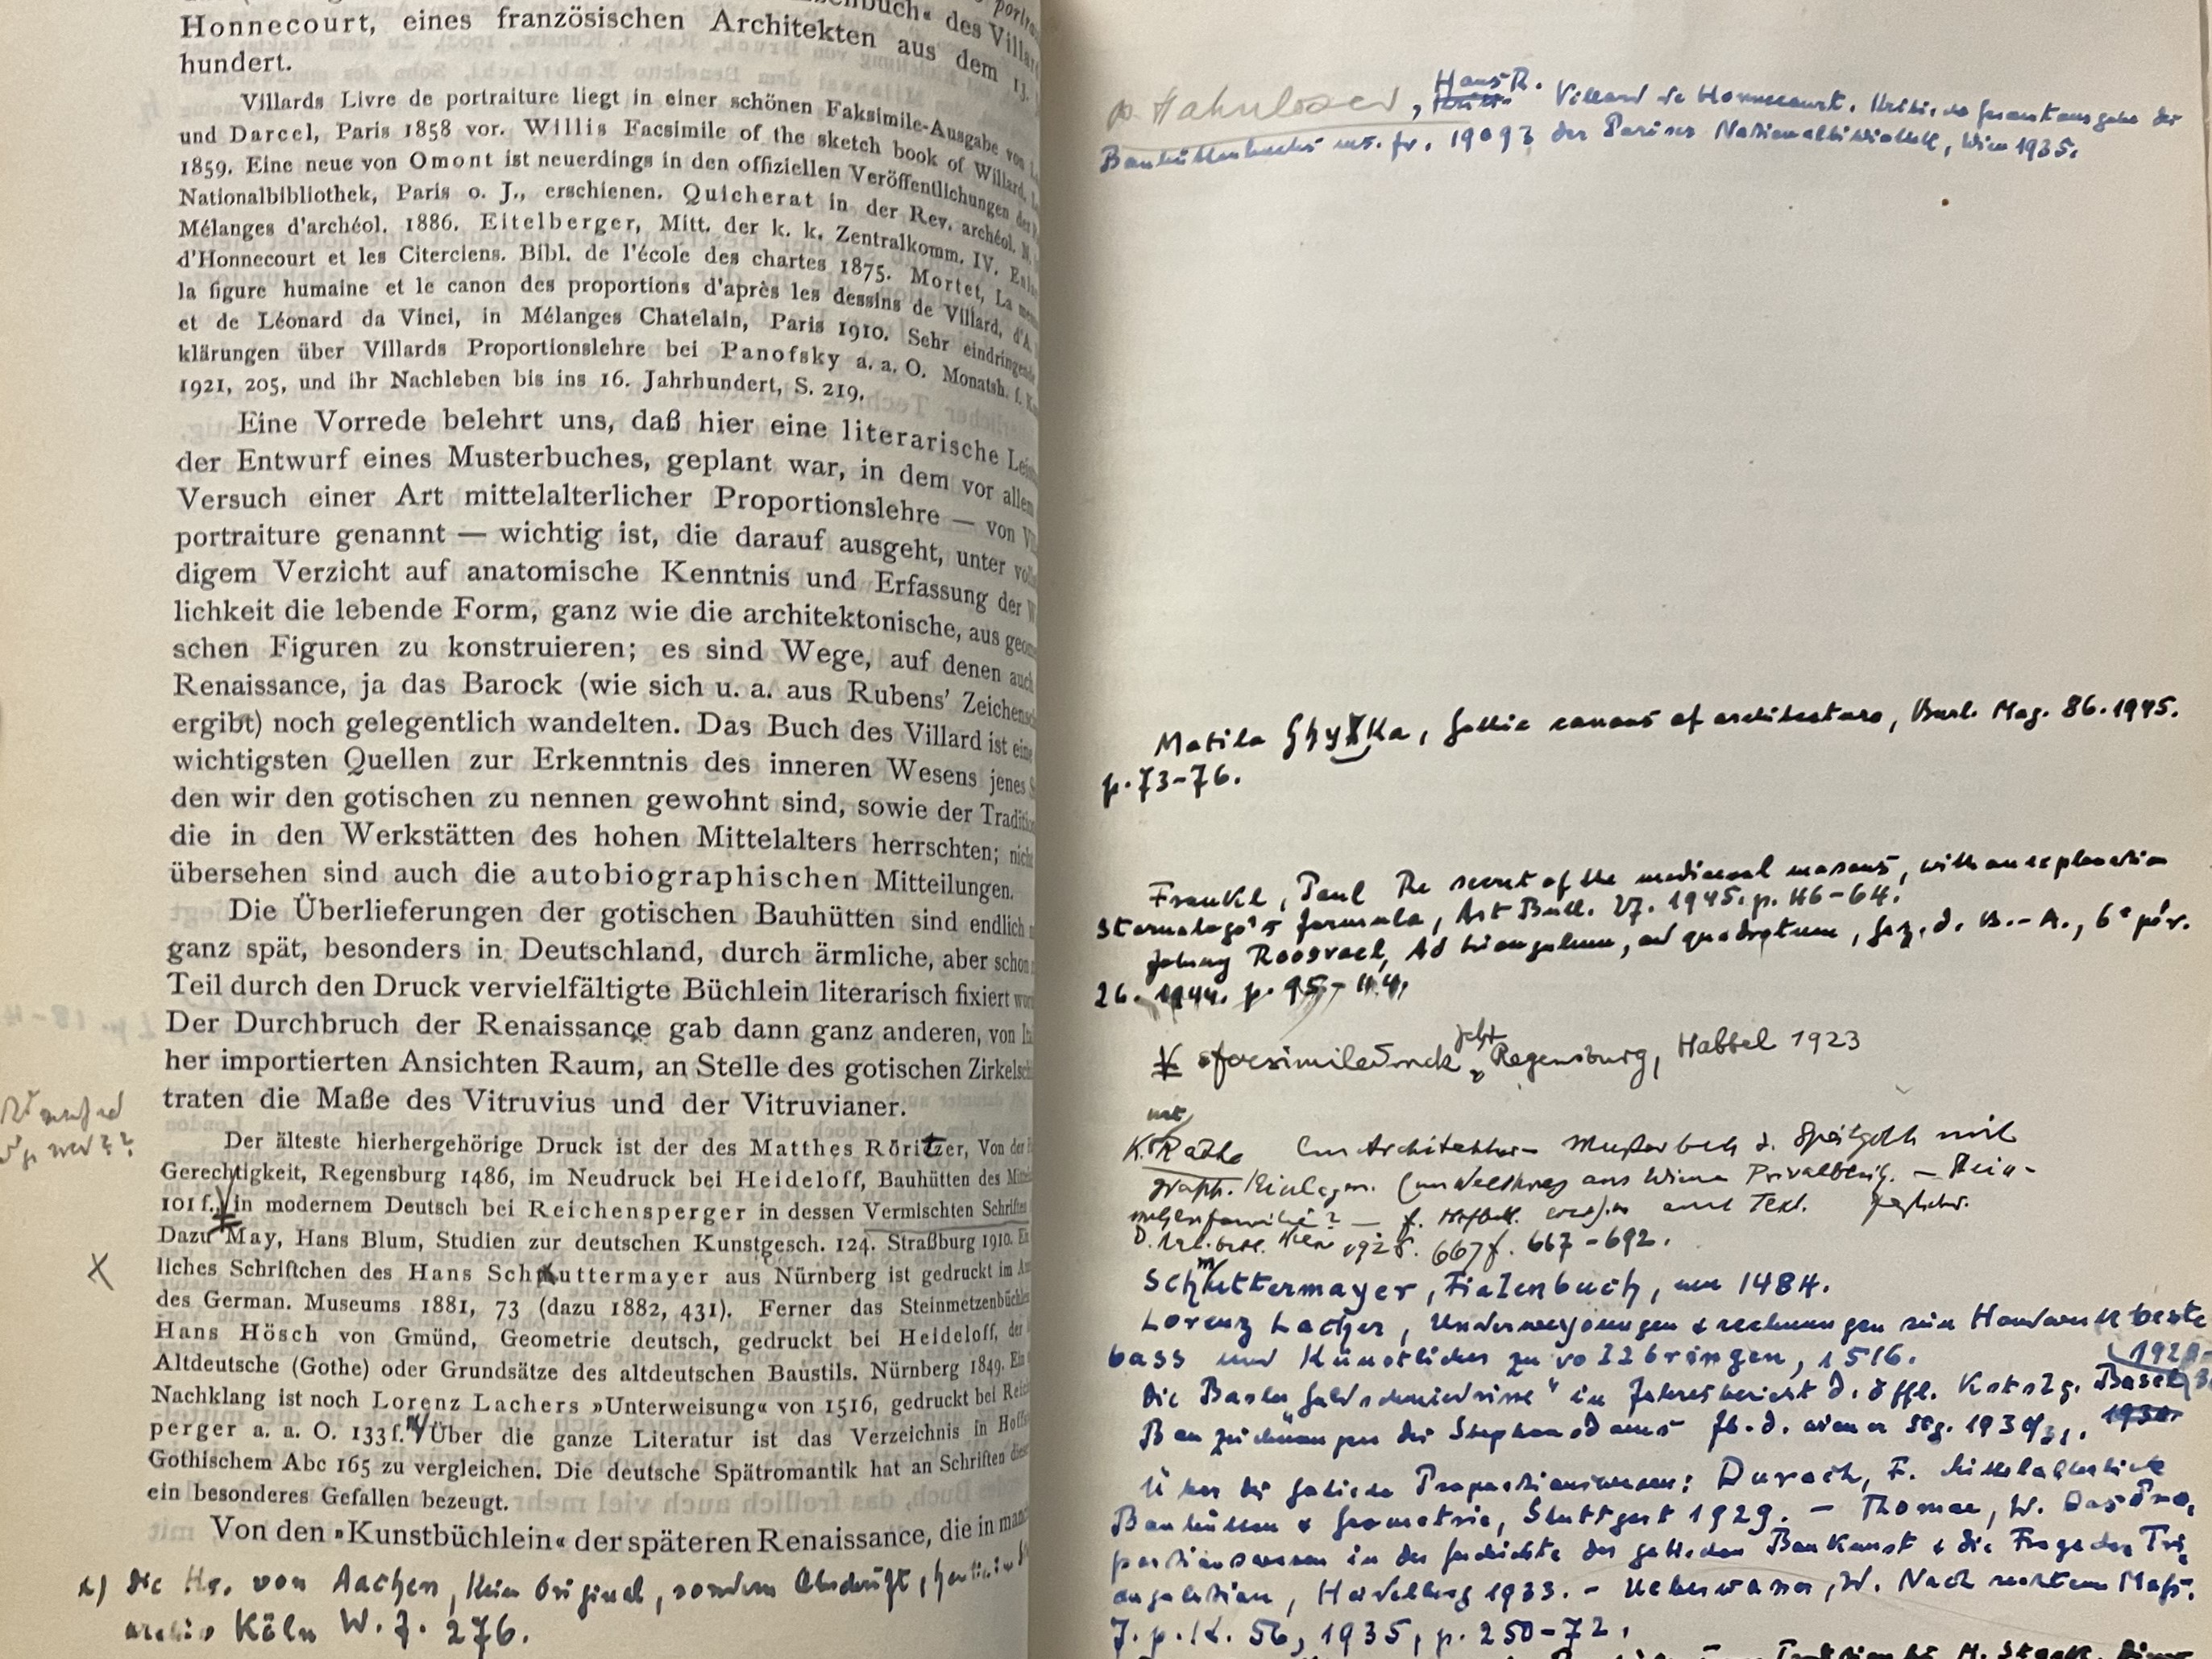 des Villard
Honnecourt, eines französischen Architekten aus dem 13.
hundert.
Villards Livre de portraiture liegt in einer schönen Faksimile-Ausgabe von
und Darcel, Paris 1858 vor. Willis Facsimile of the sketch book of Willard,
1859. Eine neue von Omont ist neuerdings in den offiziellen Veröffentlichungen der
Nationalbibliothek, Paris o. J., erschienen. Quicherat in der Rev. archéol. N.
Mélanges d'archéol. 1886. Eitelberger, Mitt. der k. k. Zentralkomm. IV.
d'Honnecourt et les Citerciens. Bibl. de l'école des chartes 1875. Mortet, La
la figure humaine et le canon des proportions d'après les dessins de Villard, d'A.
et de Léonard da Vinci, in Mélanges Chatelain, Paris 1910. Sehr eindringende
klärungen über Villards Proportionslehre bei Panofsky a. a. O. Monatsh. f.
1921, 205, und ihr Nachleben bis ins 16. Jahrhundert, S. 219.
Eine Vorrede belehrt uns, daß hier eine literarische
der Entwurf eines Musterbuches, geplant war, in dem vor allem
Versuch einer Art mittelalterlicher Proportionslehre — von
portraiture genannt — wichtig ist, die darauf ausgeht, unter
digem Verzicht auf anatomische Kenntnis und Erfassung der
lichkeit die lebende Form, ganz wie die architektonische, aus
schen Figuren zu konstruieren; es sind Wege, auf denen auch
Renaissance, ja das Barock (wie sich u. a. aus Rubens'
ergibt) noch gelegentlich wandelten. Das Buch des Villard ist
wichtigsten Quellen zur Erkenntnis des inneren Wesens jenes
den wir den gotischen zu nennen gewohnt sind, sowie der
die in den Werkstätten des hohen Mittelalters herrschten;
übersehen sind auch die autobiographischen Mitteilungen.
Die Überlieferungen der gotischen Bauhütten sind endlich
ganz spät, besonders in Deutschland, durch ärmliche, aber schon
Teil durch den Druck vervielfältigte Büchlein literarisch fixiert
Der Durchbruch der Renaissance gab dann ganz anderen, von
her importierten Ansichten Raum, an Stelle des gotischen
traten die Maße des Vitruvius und der Vitruvianer.
Der älteste hierhergehörige Druck ist der des Matthes Röritzer, Von der
Gerechtigkeit, Regensburg 1486, im Neudruck bei Heideloff, Bauhütten des
101 f. in modernem Deutsch bei Reichensperger in dessen Vermischten Schriften
Dazu May, Hans Blum, Studien zur deutschen Kunstgesch. 124. Straßburg 1910.
liches Schriftchen des Hans Schmuttermayer aus Nürnberg ist gedruckt im
des German. Museums 1881, 73 (dazu 1882, 431). Ferner das
Hans Hösch von Gmünd, Geometrie deutsch, gedruckt bei Heideloff, der
Altdeutsche (Gothe) oder Grundsätze des altdeutschen Baustils. Nürnberg 1849.
Nachklang ist noch Lorenz Lachers »Unterweisung« von 1516, gedruckt bei
perger a. a. O. 133 f. Über die ganze Literatur ist das Verzeichnis in
Gothischem Abc 165 zu vergleichen. Die deutsche Spätromantik hat an Schriften
ein besonderes Gefallen bezeugt.
Von den »Kunstbüchlein« der späteren Renaissance, die in
die Hs. von Aachen, kein Original, sondern Abschrift,
Köln W. f. 276.
Hahnloser, Hans R. Villard de Honnecourt. Kritische Gesamtausgabe des
Bauhüttenbuchs ms. fr. 19093 der Pariser Nationalbibliothek, Wien 1935.
Matila Ghyka, Gothic canons of architecture, Burl. Mag. 86. 1945.
p. 73-76.
Frankl, Paul The secret of the mediaeval masons, with an explanation
Stornaloco's formula, Art Bull. 27. 1945. p. 46-64.
Johnny Roosval, Ad triangulum, ad quadratum, Gaz. d. B.-A., 6e pér.
26. 1944. p. 95-
Facsimiledruck jetzt Regensburg, Habbel 1923
K. Rathe Ein Architektur-Musterbuch d. Spätgotik mit
graph. Einlagen. aus Wiener Privatbesitz.
667-692.
Schmuttermayer, Fialenbuch, um 1484.
Lorenz Lacher, Underweysungen & rechnungen
bass und Künstlicher zu vollbringen, 1516.
die Basler Goldschmiedrisse in Jahresbericht d. öffl. Kstslg. Basel
Bauzeichnungen des Stephansdoms
Über die gotischen Proportionswesen: Durach, F. Mittelalterliche
Bauhütten & Geometrie, Stuttgart 1929. - Thomae, W. Das Pro-
portionswesen in der Geschichte der gotischen Baukunst & die Frage der Tri-
angulation, Heidelberg 1933. - Ueberwasser, W. Nach rechtem Maß.
J. p. K. 56, 1935, p. 250-72.